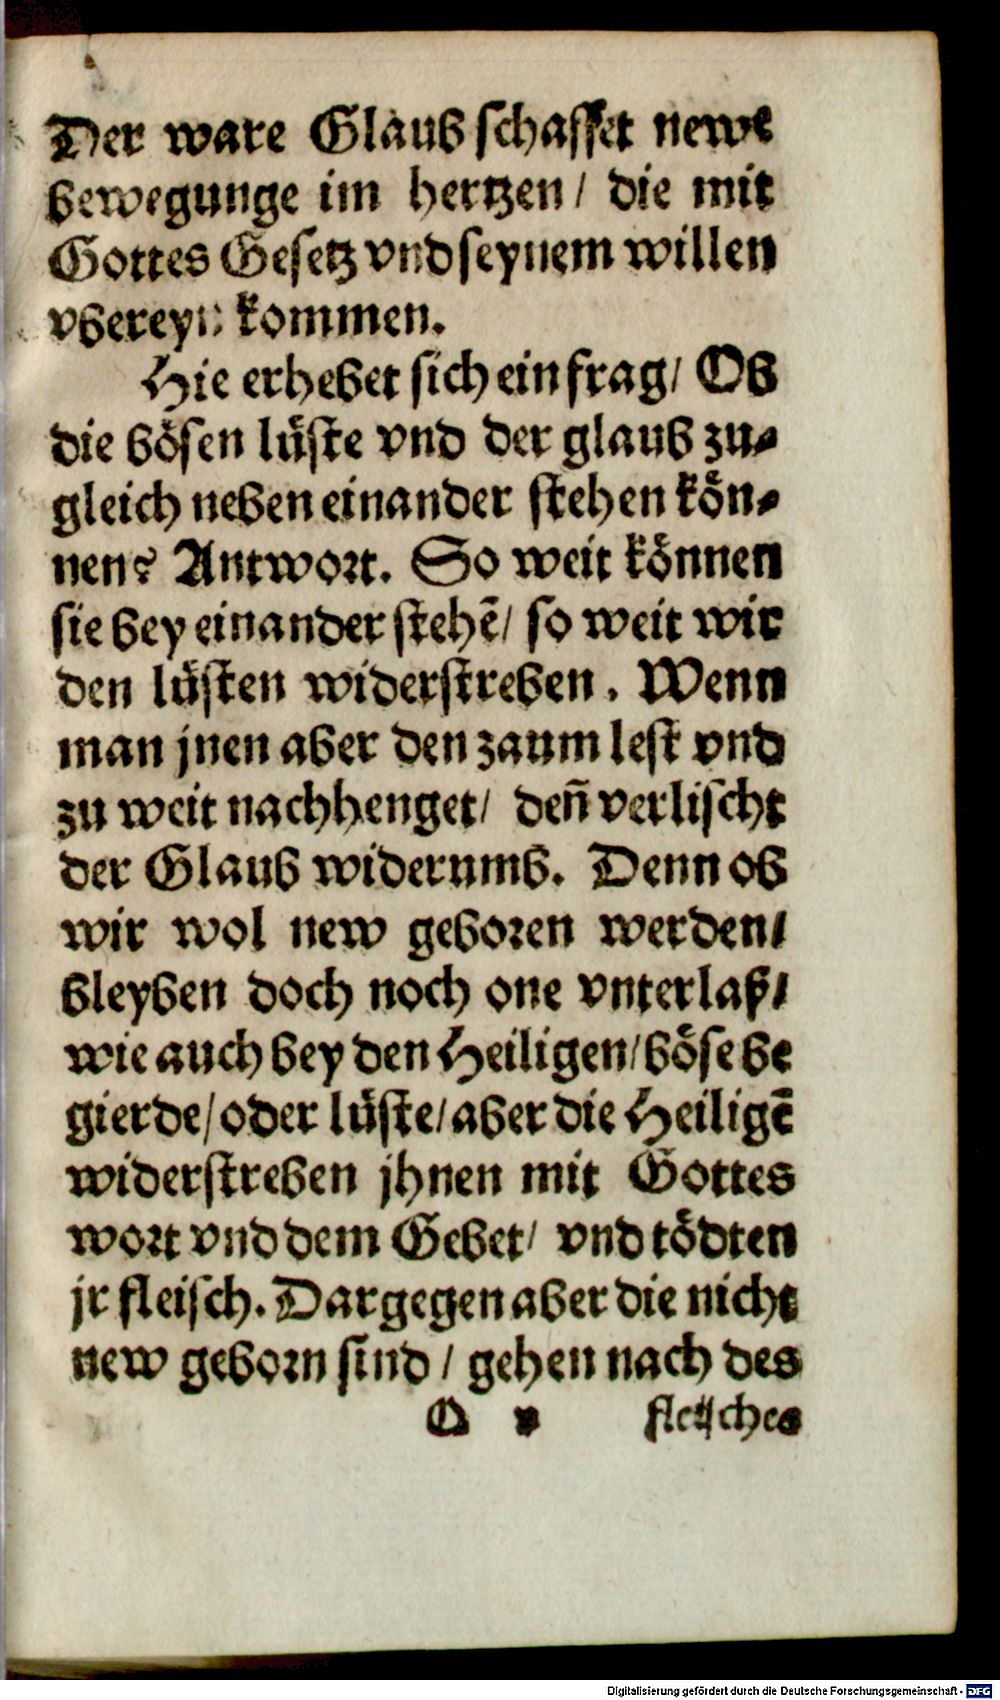 Der ware Glaub schaffet newe
bewegunge im hertzen/ die mit
Gottes Gesetz vnd seynem willen
vbereyn kommen.
Hie erhebet sich ein frag/ Ob
die bösen lüste vnd der glaub zu⸗
gleich neben einander stehen kön⸗
nen? Antwort. So weit können
sie bey einander stehē/ so weit wir
den lüsten widerstreben. Wenn
man jnen aber den zaum lest vnd
zu weit nachhenget/ deñ verlischt
der Glaub widerumb. Denn ob
wir wol new geboren werden/
bleyben doch noch one vnterlaß/
wie auch bey den Heiligen/ böse be
gierde/ oder lüste/ aber die Heiligē
widerstreben jhnen mit Gottes
wort vnd dem Gebet/ vnd tödten
jr fleisch. Dargegen aber die nicht
new geborn sind/ gehen nach des
O v fleisches
Digitalisierung gefördert durch die Deutsche Forschungsgemeinschaft - DFG